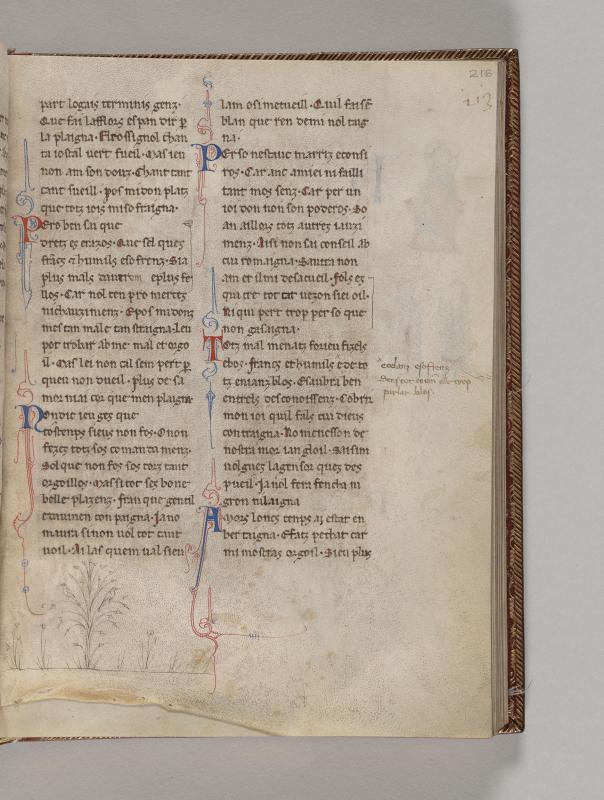 216
213
part logais terminis genz.
Que fai lafflors espan dir p
la plaigna. El rossignol chan
ta iostal uert fueil. Mas ieu
non am son douz. Chant tant
cant sueill. Pos midon platz
que totz iois miso fraigna.
Pero ben sai que
dretz es erazos. Que sel ques
francs & humils eso frenz. Sia
plus mals eplus fe
llos. Car nol ten pro merces
nichauzimenz. Epos midonz
mes tan male tan straigna. Leu
por trobar ab me. mal et orgo
il. Mas lei non cil sem pert p
queu non dueil. plus de sa
mor mai cor que men plaigna.
Non dic ieu ges que
costemps sieus non fos. O non
fezes totz sos comanda menz.
Sol que non fos sos cors tant
orgoillos. Mas si tot ses bone
belle plazenz. fran que gentil
& auinen con paigna. Ja no
maura si non uol tot cant
uoil. Ai las quem ual sieu
lam osi metueill. Quil fai se
blan que ren demi nol tag
na.
Per so nestauc marritz econsi
ros. Car anc amiei ni failli
tant mos senz. Car per un
ioi don non son poderos. So
an aillors totz autres iauzi
menz. Aisi non sai conseil ab
cui romaigna. Sautra non
am et il mi desacueil. fols es
qui cre tot cat uezon siei oil.
Ni qui pert trop per so que
non gasaigna.
Totz mal menatz foueu fizels
ebos. francs et humils & de to
tz enianz blos. Esaubra ben
entrels desconoissenz. Cobrir
mon ioi quil fals cui dieus
contraigna. No mencsson de
nostra mor ianghoil. Sai sim
uolgues lagensor quez des
pueil. Ja nol fera fencha ni
gron nilaigna
Amors lonc temps ai estat en
ber taigna. Efatz pechat car
mi mostras orgoil. Sieu plus